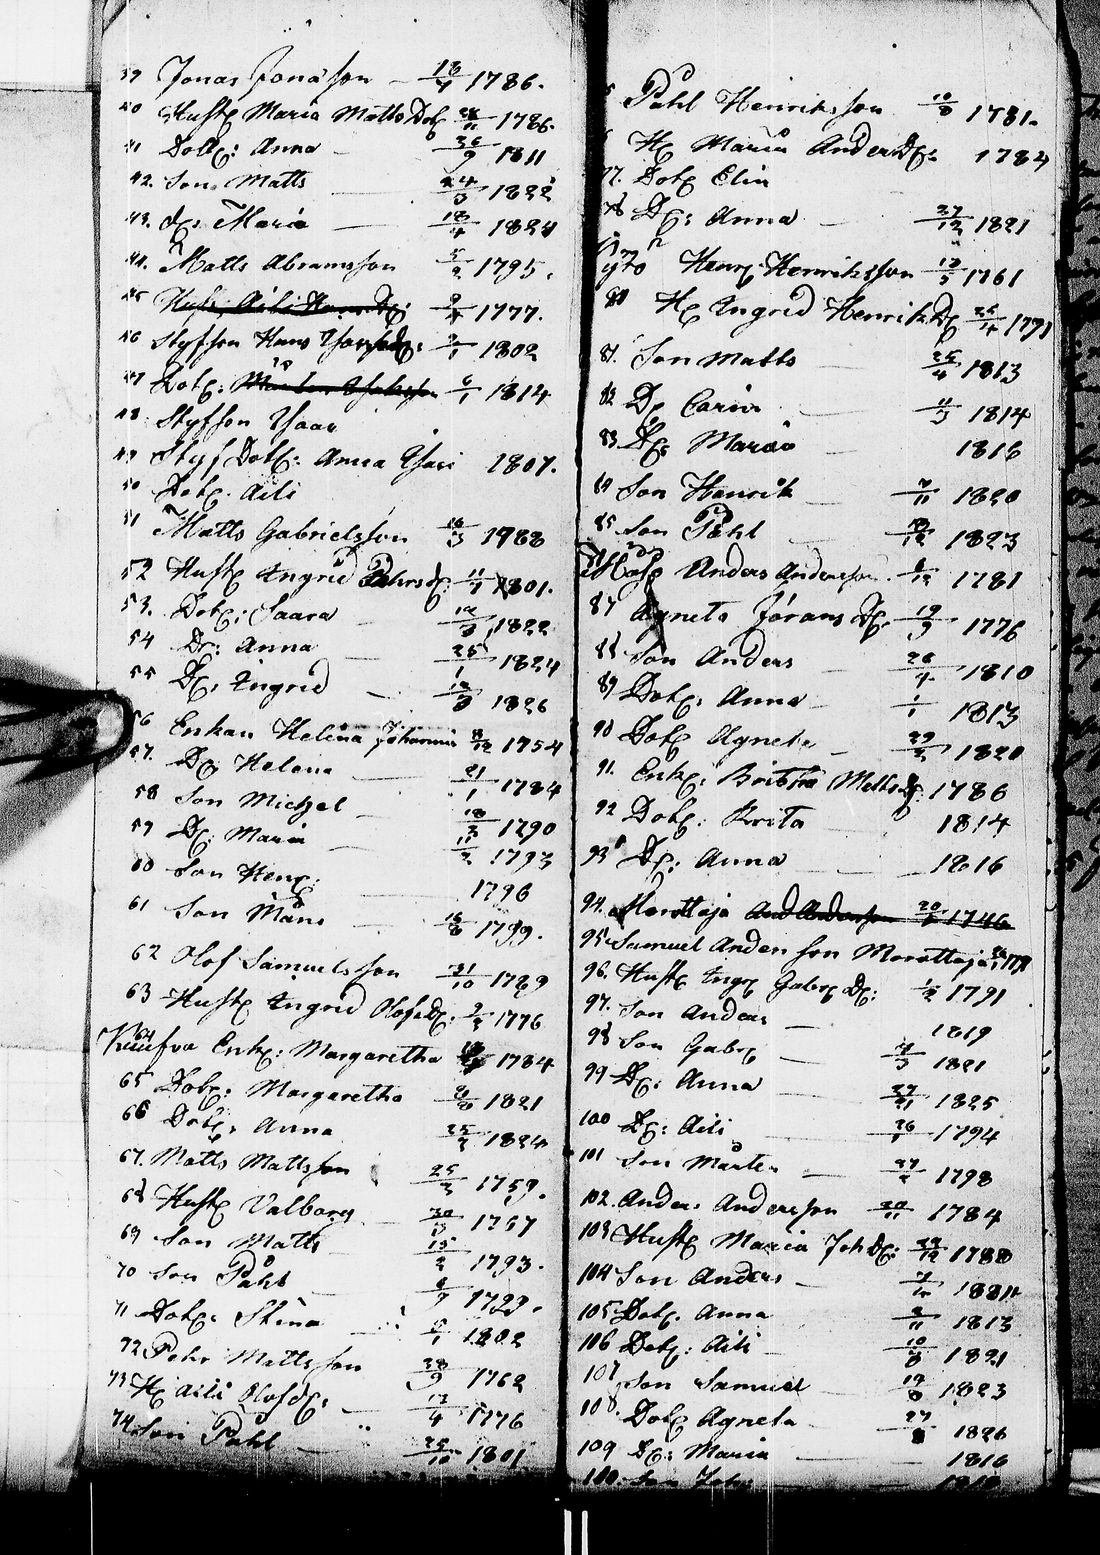 39 Jonas Jonasson 18/4 1786.
40 Hust: Maria Matts Dot: 1786.
41 Dott: Anna 26/9 1811
42. Son Matts 24/3 1822
43. D: Maria 18/4 1824
44. Matts Abramsson 5/2 1795.
45 Hust: Aili 1777.
46 Styfson Hans 1802
47 Dot: 6/1 1814
48 Styfson Isaac
49 Styf Dot: Anna 1807.
50 Dot: Aili
51 Matts Gabrielsson 16/3 1788
52 Hust: Ingrid Pehrs D: 1801.
53. Dot: Saara 1822
54 D: Anna 25/1 1824
55 D: Ingrid 1826
56 Enkan Helena Johannis 1754
57. D: Helena 21/1 1784
58 Son Michel 18/3 1790
59 D: Maria 11/2 1793
60 Son Henr: 1796
61 Son Måns 1799.
62 Olof Samuelsson 31/10 1769
63 Hust: Ingrid Olofs D: 9/2 1776
64 Enk: Margaretha 1784
65 Dot: Margaretha 1821
66 Dot: Anna 25/2 1824
67. Matts Mattsson 25/3 1759.
68 Hust: Valborg 1757
69 Son Matts 1793.
70 Son Påhl 1799.
71 Dot: Stina 1802
72 Pehr Mattsson 28/9 1762
73 H: Aili Olofs D: 17/4 1776
74 Son Påhl 25/10 1801
Påhl Henriksson 10/8 1781.
H: Maria Anders D: 1784
77. Dot: Elin
78 D: Anna 27/12 1821
79 Henr: Henriksson 18/5 1761
80 H: Ingrid Henriks D: 1771
81. Son Matts 25/4 1813
82 D: Carin 11/3 1814
83 D: Maria 1816
84 Son Henrik 7/11 1820
85 Son Påhl 1823
Anders Andersson 1781
87 Agneta Jörans D: 19/3 1776
88 Son Anders 26/4 1810
89 Dot: Anna 1/1 1813
90 Dot: Agneta 29/3 1820
91. Enk: Britha Matts D: 1786
92 Dot: Brita 1814
93 D: Anna 1816
94. Morottaja And Andersson 1746
95 Samuel Andersson Morottaja
96. Hust: Ingr: Gabr: D: 1791
97. Son Anders 1819
98 Son Gabr: 4/3 1821
99 D: Anna 1825
100 D: Aili 26/1 1794
101 Son Mårten 27/2 1798
102. Anders Andersson 20/11 1784
103 Hust: Maria Joh D: 29/12 1788
104 Son Anders
105 Dot: Anna 1813
106 Dot: Aili 10/8 1821
107 Son Samuel 19/8 1823
108 Dot: Agneta 1826
109 D: Maria 1816
110. Son